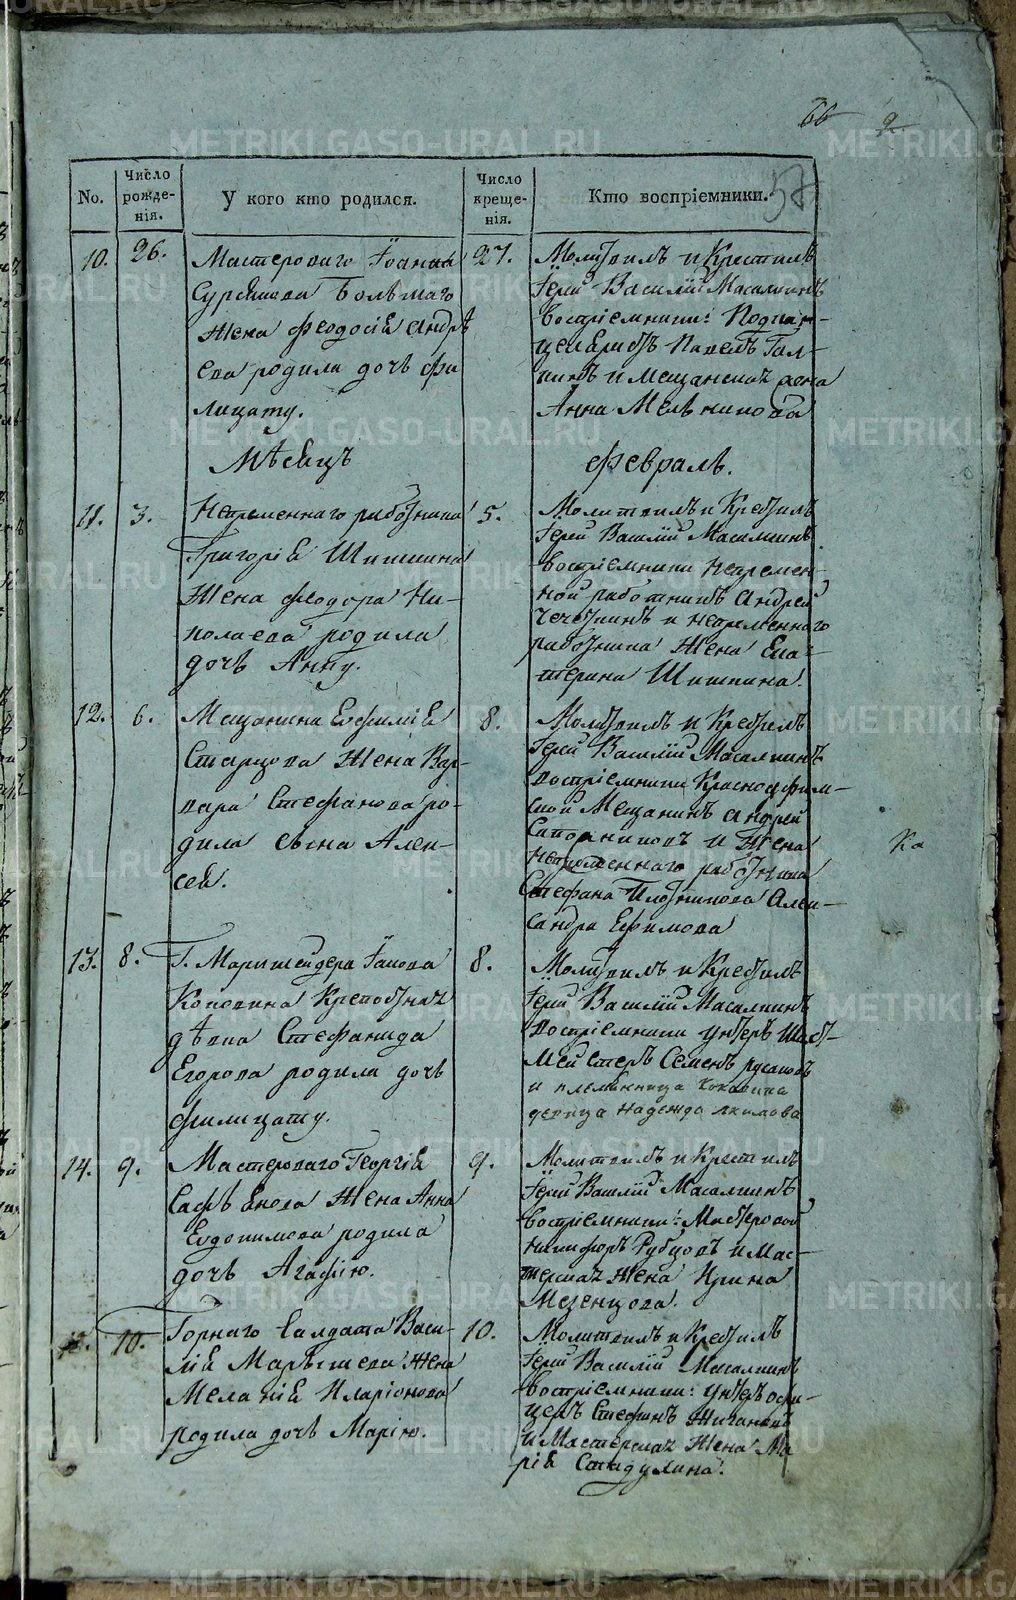 66 9
57
No.
Число рожденія.
У кого кто родился.
Число крещенія.
Кто воспріемники.
10. 26.
Мастероваго Іоанна
Сурѣнкова Большаго
Жена Феодосія Андрѣ
ева родила дочь Фи
лицату.
27.
Молитвилъ и Крестилъ
Іерей Василій Масалкинъ
Востріемники:
Павелъ Гал-
кинъ и Мещанская жена
Анна Мельникова
Мѣсяцъ Февраль.
11. 3.
Непременнаго работника
Григорія Шишкина
Жена Феодора Ни-
колаева родила
дочь Анну.
5.
Молитвилъ и Крестилъ
Іерей Василій Масалкинъ
Востріемники Непремен-
ной работникъ Андрей
и непременнаго
работника Жена Ека-
терина Шишкина.
12. 6.
Мещанина Евфимія
Старцова Жена Вар-
вара Стефанова ро-
дила сына Алек-
сея.
8.
Молитвилъ и Крестилъ
Іерей Василій Масалкинъ
Востріемники Красноуфим-
ской Мещанинъ Андрей
Сапожниковъ и Жена
Непременнаго работника
Стефана Плотникова Алек-
сандра Ефимова
Ка
13. 8.
Г. Маркшейдера Іакова
Коковина Крепостная
дѣвка Стефанида
Егорова родила дочь
Филицату.
8.
Молитвилъ и Крестилъ
Іерей Василій Масалкинъ
Востріемники Унтеръ Шахт-
мейстеръ Семенъ Русановъ
и племянница Коковина
девица Надежда Якимова
14. 9.
Мастероваго Георгія
Сафьянова Жена Анна
Евдокимова родила
дочь Агафію.
9.
Молитвилъ и Крестилъ
Іерей Василій Масалкинъ
Востріемники: Мастеровой
Никифоръ Рубцовъ и Мас-
терская Жена Ирина
Мезенцова.
10.
Горнаго Салдата Васи-
лія Марышева Жена
Меланія Иларіонова
родила дочь Марію.
10.
Молитвилъ и Крестилъ
Іерей Василій Масалкинъ
Востріемники: Унтеръ офи-
церъ Стефанъ
и Мастерская Жена Ма
рія Стадулина.